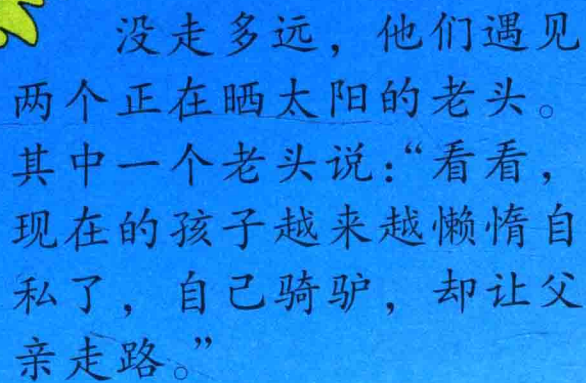 没走多远，他们遇见
两个正在晒太阳的老头。
其中一个老头说：“看看，
现在的孩子越来越懒惰自
私了，自己骑驴，却让父
亲走路。”